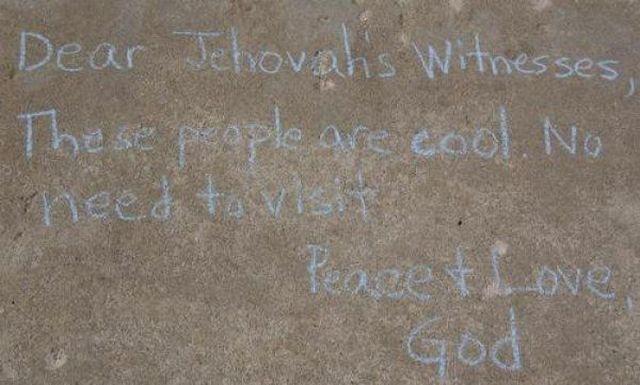 Dear Jehovah's Witnesses,
These people are cool. No
need to visit
Peace & Love,
God